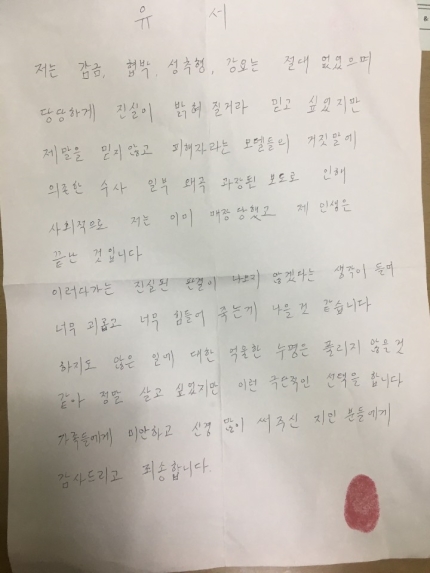 유 서
저는 감금, 협박, 성추행, 강요는 절대 없었으며
당당하게 진실이 밝혀 질거라 믿고 싶었지만
제 말을 믿지 않고 피해자라는 모델들의 거짓말에
의존한 수사 일부 왜곡 과장된 보도로 인해
사회적으로 저는 이미 매장 당했고 제 인생은
끝난 것입니다
이러다가는 진실된 판결이 나오지 않겠다는 생각이 들며
너무 괴롭고 너무 힘들어 죽는게 나을 것 같습니다
하지도 않은 일에 대한 억울한 누명은 풀리지 않을 것
같아 정말 살고 싶었지만 이런 극단적인 선택을 합니다
가족들에게 미안하고 신경 많이 써주신 지인 분들에게
감사드리고 죄송합니다.